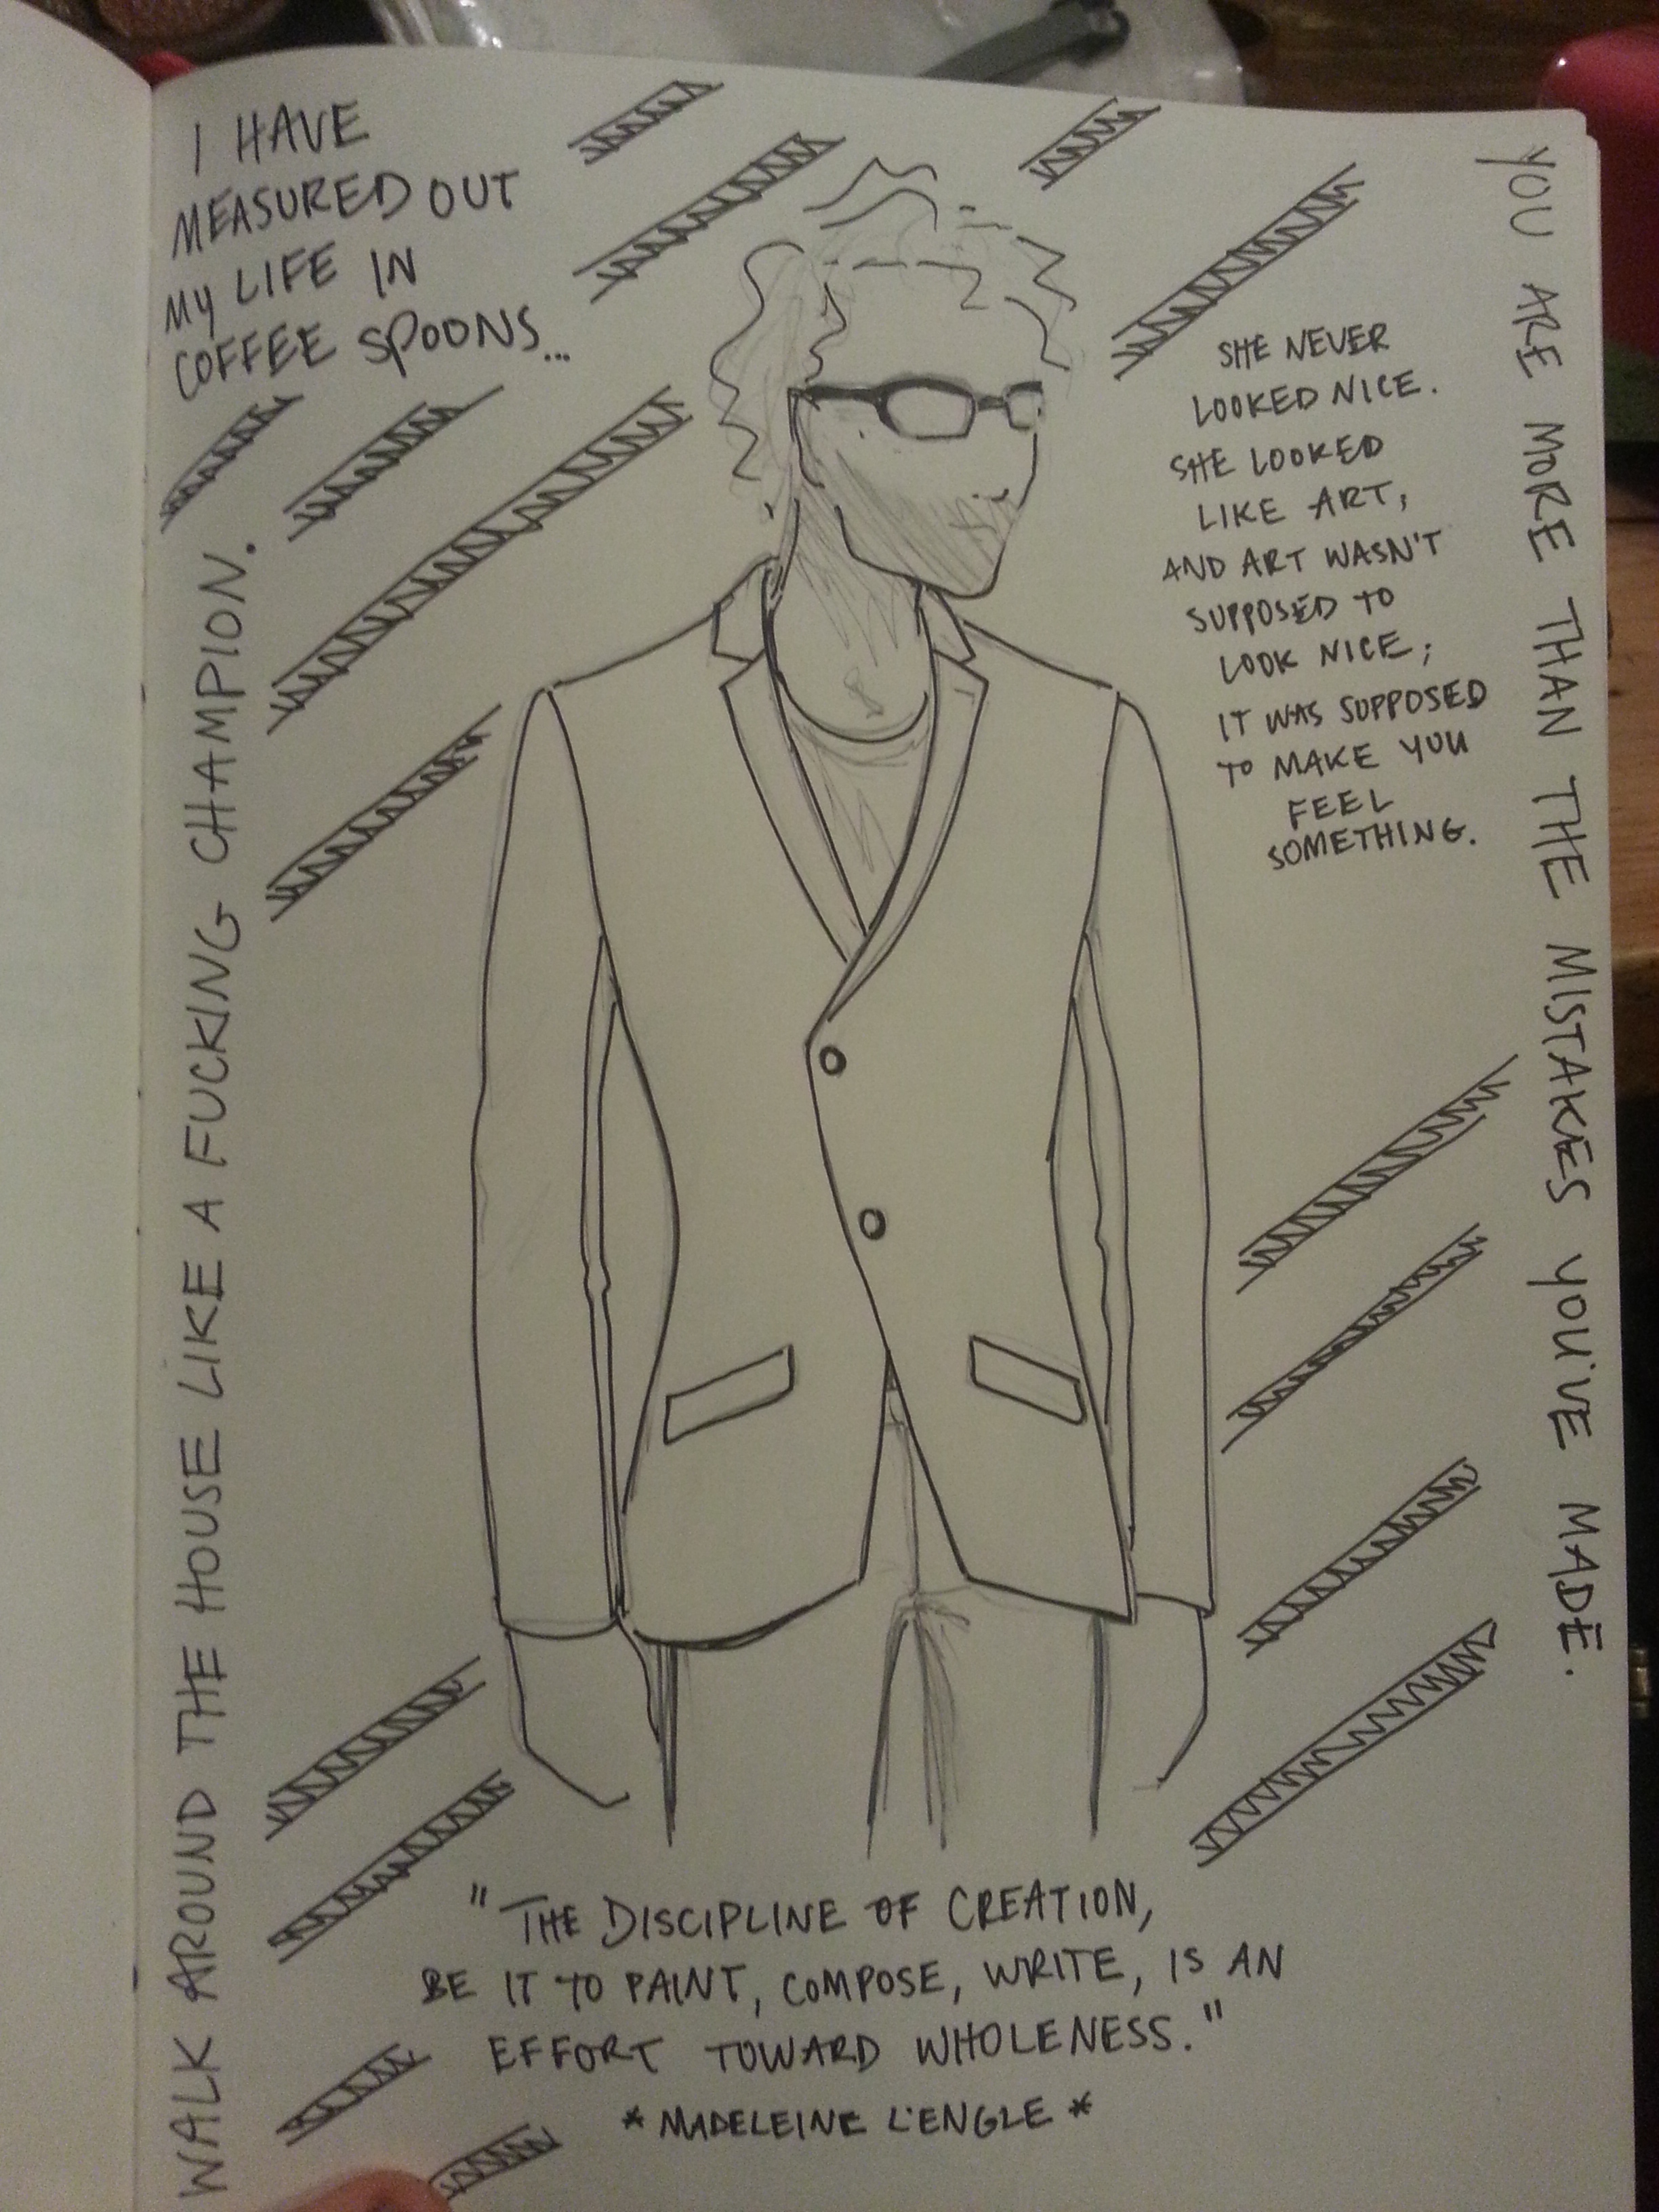 I HAVE
MEASURED OUT
MY LIFE IN
COFFEE SPOONS...
SHE NEVER
LOOKED NICE.
SHE LOOKED
LIKE ART,
AND ART WASN'T
SUPPOSED TO
LOOK NICE;
IT WAS SUPPOSED
TO MAKE YOU
FEEL
SOMETHING.
YOU ARE MORE THAN THE MISTAKES YOU'VE MADE.
WALK AROUND THE HOUSE LIKE A FUCKING CHAMPION.
"THE DISCIPLINE OF CREATION,
BE IT TO PAINT, COMPOSE, WRITE, IS AN
EFFORT TOWARD WHOLENESS."
* MADELEINE L'ENGLE *